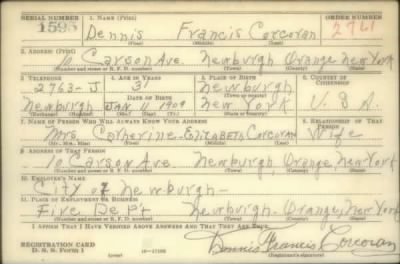 SERIAL NUMBER 1. NAME (Print) ORDER NUMBER
1595 Dennis Francis Corcoran 2761
(First) (Middle) (Last)
2. ADDRESS (Print)
10 Carson Ave. Newburgh Orange New York
(Number and street or R. F. D. number) (Town) (County) (State)
3. TELEPHONE 4. AGE IN YEARS 5. PLACE OF BIRTH 6. COUNTRY OF CITIZENSHIP
2763-J 31 Newburgh
DATE OF BIRTH (Town or county)
Newburgh JAN 4 1909 New York U.S.A.
(Exchange) (Number) (Mo.) (Day) (Yr.) (State or country)
7. NAME OF PERSON WHO WILL ALWAYS KNOW YOUR ADDRESS 8. RELATIONSHIP OF THAT PERSON
Mrs. Catherine Elizabeth Corcoran Wife
(Mr., Mrs., Miss) (First) (Middle) (Last)
9. ADDRESS OF THAT PERSON
10 Carson Ave Newburgh, Orange, New York
(Number and street or R. F. D. number) (Town) (County) (State)
10. EMPLOYER'S NAME
City of Newburgh-
11. PLACE OF EMPLOYMENT OR BUSINESS
Fire Dep't Newburgh-Orange, New York
(Number and street or R. F. D. number) (Town) (County) (State)
I AFFIRM THAT I HAVE VERIFIED ABOVE ANSWERS AND THAT THEY ARE TRUE.
REGISTRATION CARD Dennis Francis Corcoran
D. S. S. Form 1 (over) (Registrant's signature)